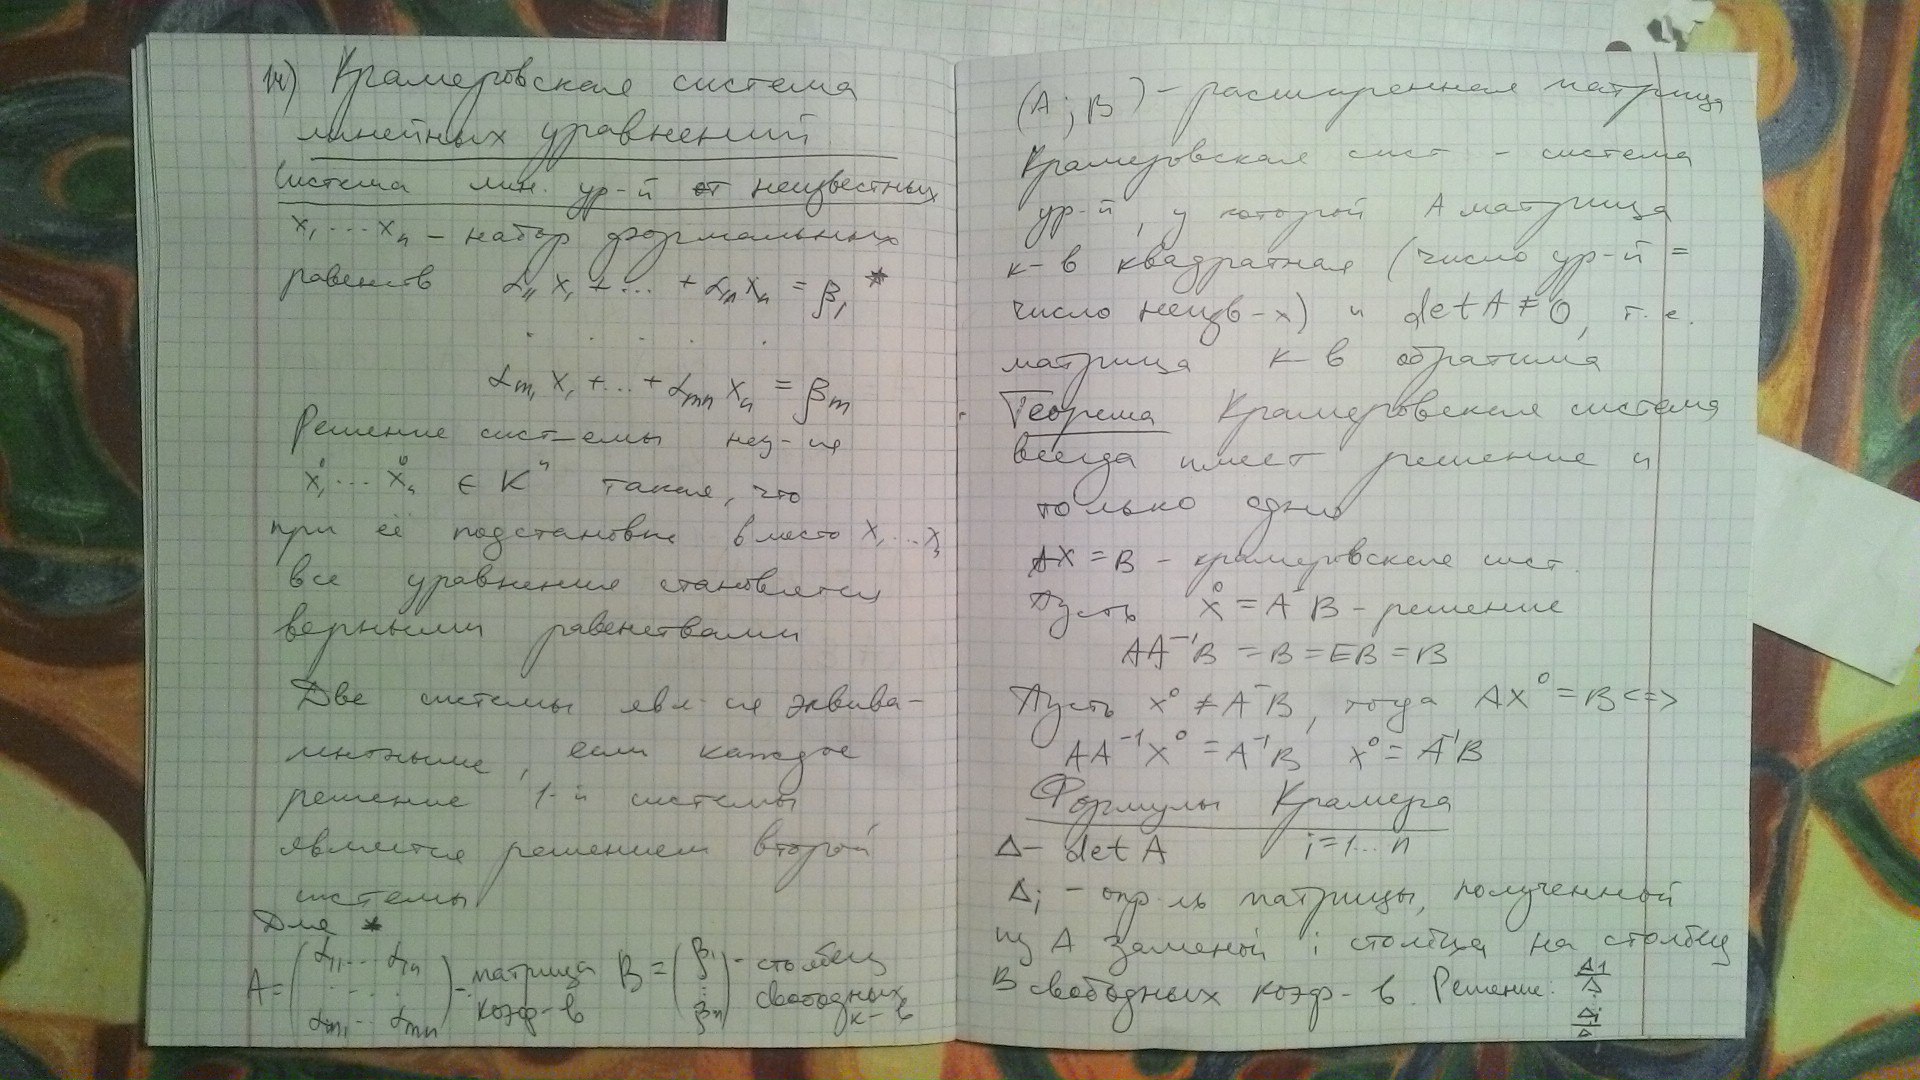 14) Крамеровская система
линейных уравнений
Система лин. ур-й от неизвестных
x₁ ... xₙ - набор формальных
равенств α₁₁ x₁ + ... + α₁ₙ xₙ = β₁ *
. . . . .
αₘ₁ x₁ + ... + αₘₙ xₙ = βₘ
Решение системы наз-ся
x₁⁰ ... xₙ⁰ ∈ Kⁿ такая, что
при её подстановке вместо x₁ ... xₙ
все уравнения становятся
верными равенствами
Две системы явл-ся эквива-
лентными, если каждое
решение 1-й системы
является решением второй
системы
Для *
A = (α₁₁ ... α₁ₙ ... αₘ₁ ... αₘₙ) - матрица коэф-в B = (β₁ ⋮ βₙ) - столбец свободных к-в
(A ; B) - расширенная матрица
Крамеровская сист - система
ур-й, у которой A матрица
к-в квадратная (число ур-й =
число неизв-х) и det A ≠ 0, т.е.
матрица к-в обратима
Теорема Крамеровская система
всегда имеет решение и
только одно
AX = B - крамеровская сист.
Пусть X⁰ = A⁻B - решение
AA⁻¹B = B = EB = B
Пусть x⁰ ≠ A⁻B, тогда AX⁰ = B <=>
AA⁻¹X⁰ = A⁻¹B X⁰ = A⁻¹B
Формулы Крамера
Δ - det A i = 1 ... n
Δi - опр-ль матрицы, полученной
из A заменой i столбца на столбец
B свободных коэф-в. Решение: Δ1/Δ
⋮
Δi/Δ